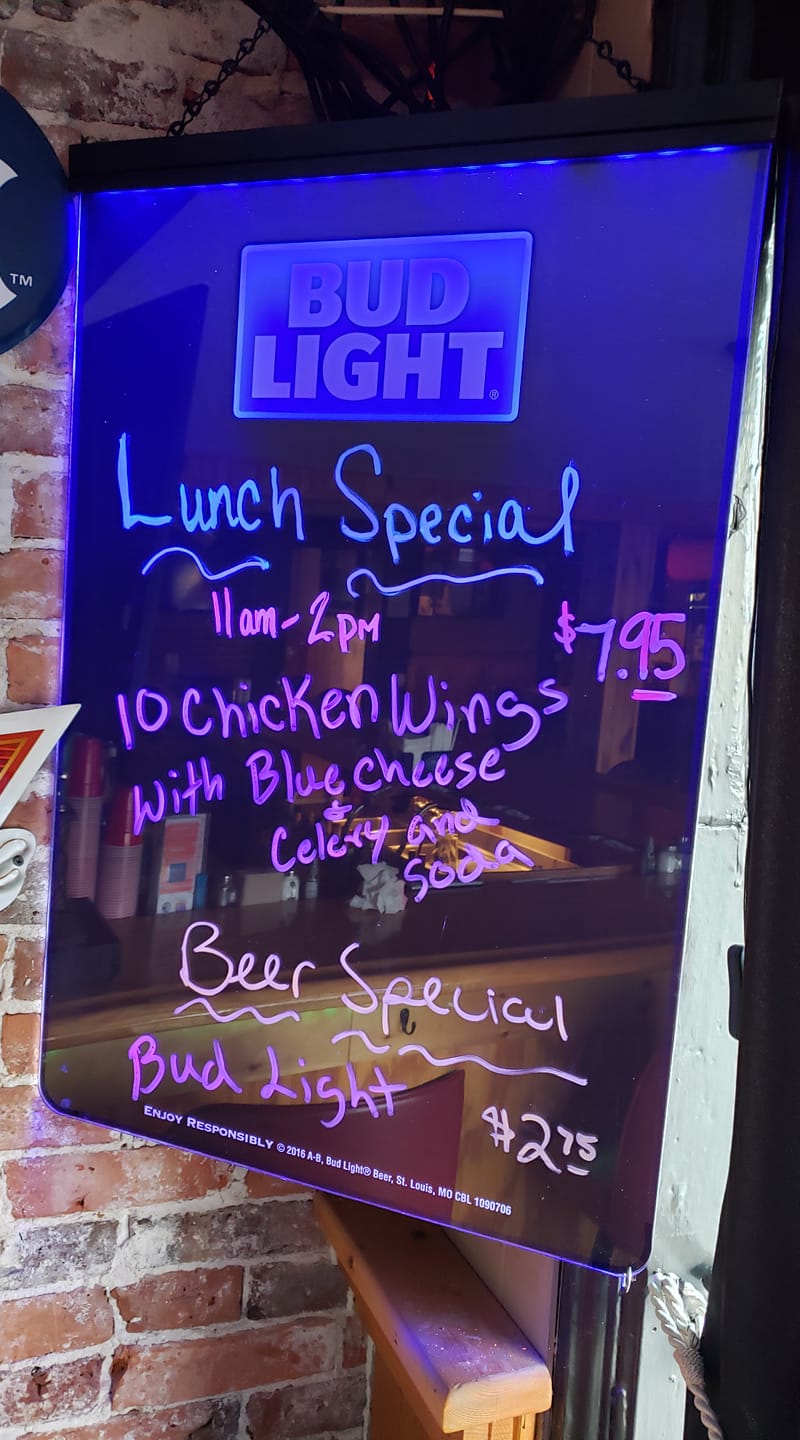 TM
BUD
LIGHT®
Lunch Special
11am-2pm
$7.95
10 Chicken Wings
with Blue cheese
&
Celery and
soda
Beer Special
Bud Light
$2.75
ENJOY RESPONSIBLY © 2016 A-B, Bud Light® Beer, St. Louis, MO CBL 1090706